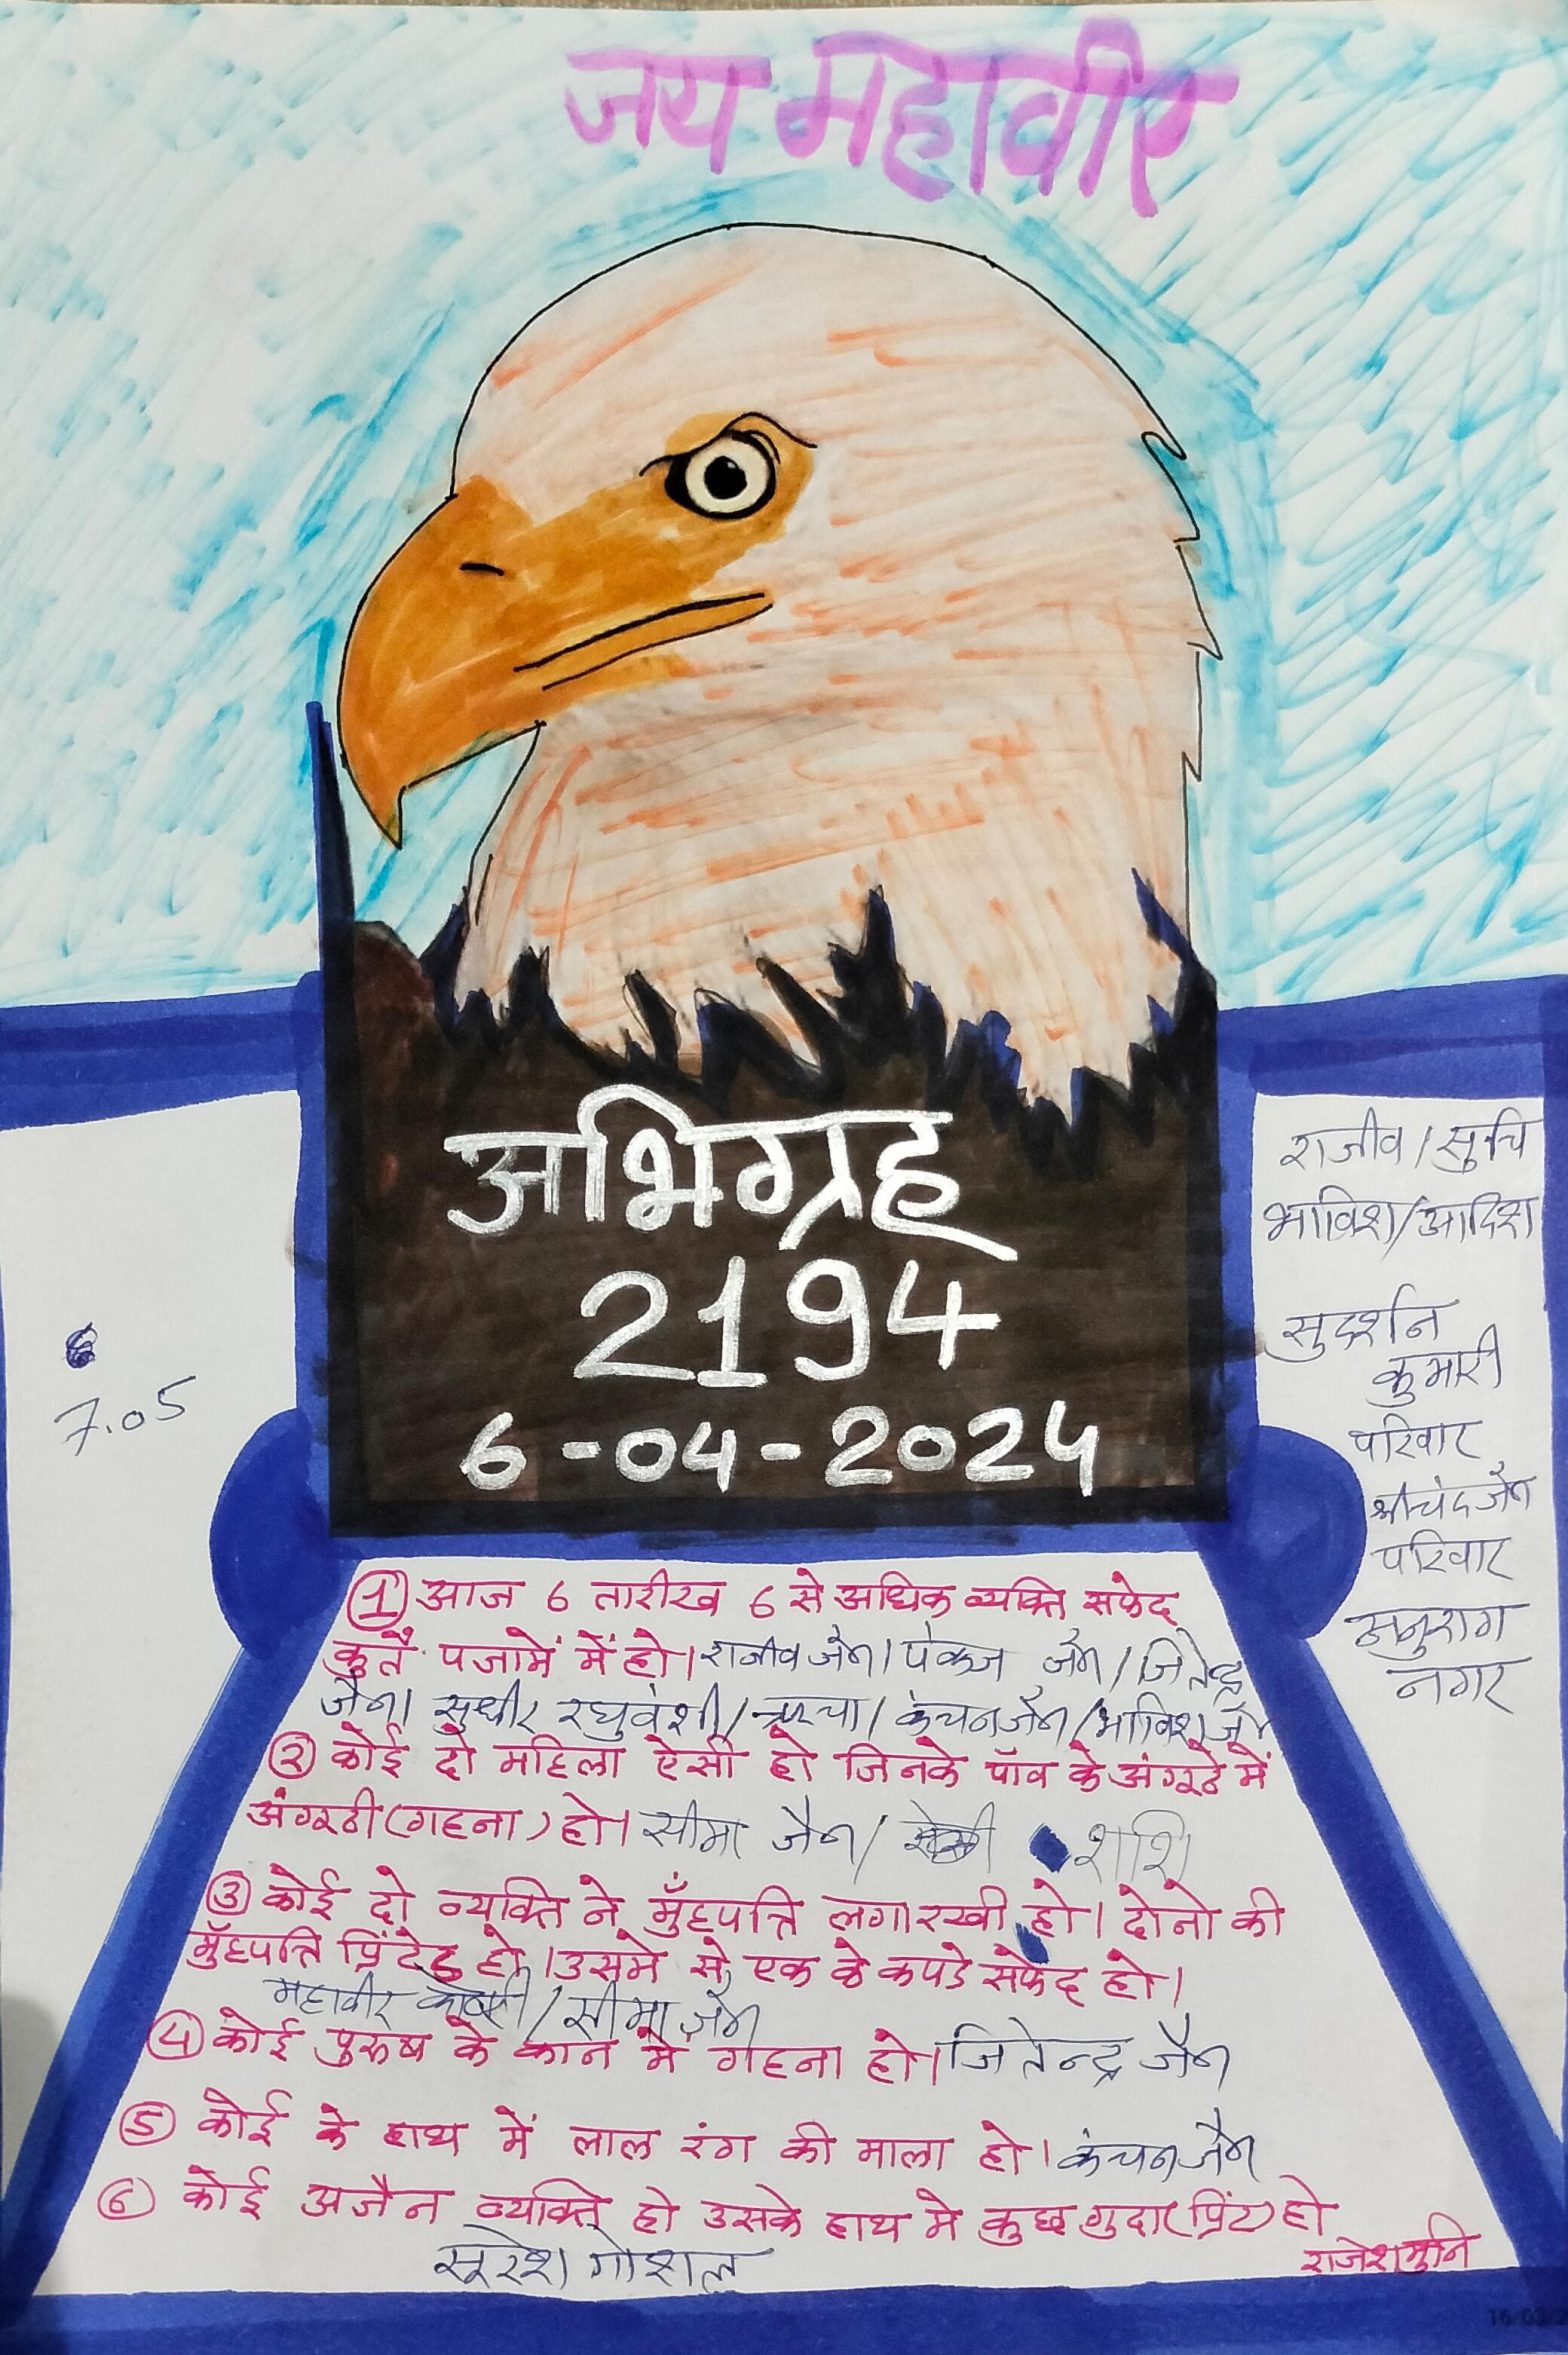 जय महावीर
अभिग्रह
2194
6-04-2024
राजीव/सुचि
भाविश/आदिश
सुदर्शन
कुमारी
परिवार
श्रीचंद जैन
परिवार
अनुराग
नगर
7.05
① आज 6 तारीख 6 से अधिक व्यक्ति सफेद
कुर्ते पजामें में हो। राजीव जैन/पंकज जैन/जितेन्द्र
जैन/सुधीर रघुवंशी/ऋचा/कंचन जैन/भाविश जैन
② कोई दो महिला ऐसी हो जिनके पॉव के अंगूठे में
अंगूठी (गहना) हो। सीमा जैन/ शशि
③ कोई दो व्यक्ति ने मुँहपत्ति लगा रखी हो। दोनो की
मुँहपत्ति प्रिंटेड हो। उसमे से एक के कपडे सफेद हो।
महावीर / सीमा जैन
④ कोई पुरुष के कान मे गहना हो। जितेन्द्र जैन
⑤ कोई के हाथ में लाल रंग की माला हो। कंचन जैन
⑥ कोई अजैन व्यक्ति हो उसके हाथ मे कुछ गुदा (प्रिंट) हो
सुरेश गोशल
राजेशमुनि